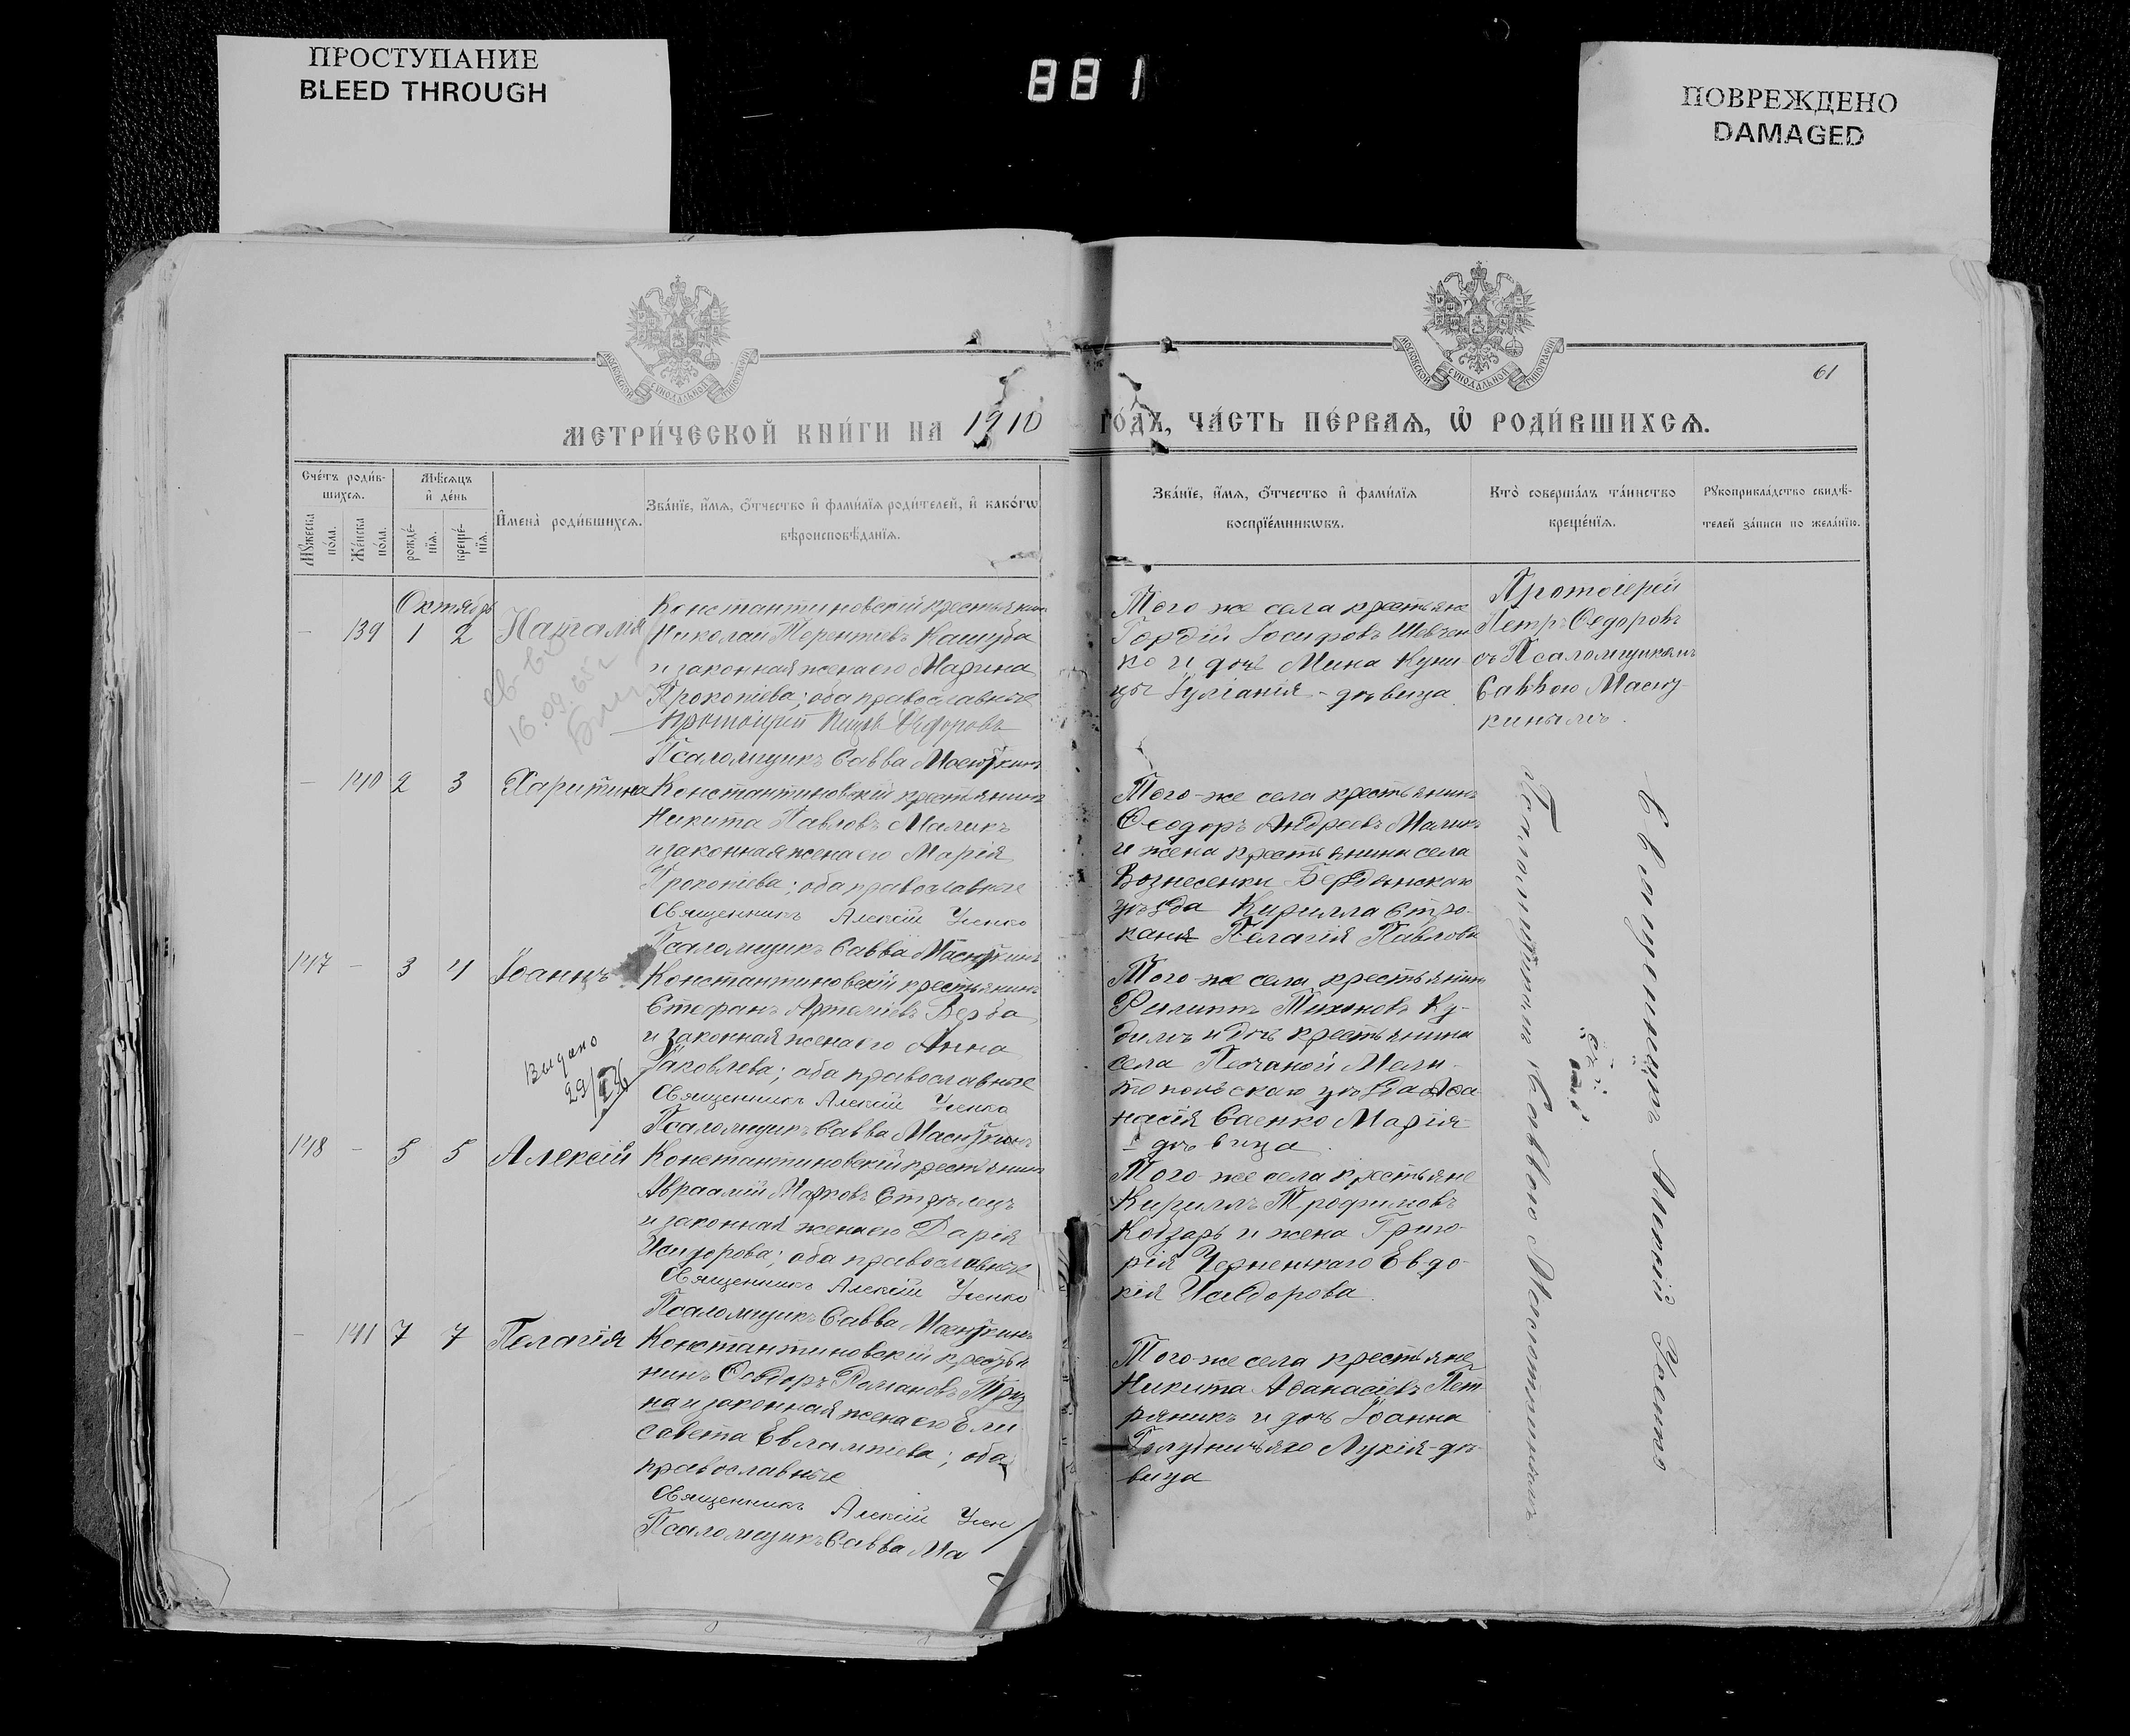 ПРОСТУПАНИЕ
BLEED THROUGH
881
ПОВРЕЖДЕНО
DAMAGED
МОСКОВСКОЙ СѴНОДАЛЬНОЙ ТИПОГРАФІИ
МОСКОВСКОЙ СѴНОДАЛЬНОЙ ТИПОГРАФІИ
61
МЕТРИ́ЧЕСКОЙ КНИ́ГИ НА 1910 ГО́ДЪ, ЧА́СТЬ ПЕ́РВАѦ, Ѡ҆ РОДИ́ВШИХСѦ.
Сче́тъ роди́в-
шихсѧ.
Мꙋжеска по́ла.
Же́нска по́ла.
Мѣ́сѧцъ
и҆ де́нь
рожде́-
нїѧ.
креще́-
нїѧ.
И҆мена̀ роди́вшихсѧ.
Зва́нїе, и҆́мѧ, ѻ҆́тчество и҆ фами́лїѧ роди́телей, и҆ како́гѡ
вѣроисповѣ́данїѧ.
Зва́нїе, и҆́мѧ, ѻ҆́тчество и҆ фами́лїѧ
воспрїе́мникѡвъ.
Кто̀ соверша́лъ та́инство
креще́нїѧ.
Рꙋкоприкла́дство свидѣ́-
телей за́писи по жела́нїю.
Октябрь
— 139 1 2 Наталія
Константиновскій крестьянинъ
Николай Терентіевъ Кашуба
и законная жена его Марина
Прокопіева; оба православные
Протоіерей Петръ Ѳедоровъ
Псаломщикъ Савва Масюткинъ
16.09.65г
Того же села крестьяне
Гордій Іосифовъ Шевчен
ко и дочь Мина Куни
цы Іуліанія - дѣвица
Протоіерей
Петръ Ѳедоровъ
съ Псаломщикомъ
Саввою Масют
кинымъ.
— 140 2 3 Харитина
Константиновскій крестьянинъ
Никита Павловъ Маликъ
и законная жена его Марія
Прокопіева; оба православные
Священникъ Алексій Усенко
Псаломщикъ Савва Масюткинъ
Того-же села крестьянинъ
Ѳеодоръ Андреевъ Маликъ
и жена крестьянина села
Вознесенки Бердянскаго
уѣзда Кирилла Стро-
каня Пелагія Павлова
147 — 3 4 Іоаннъ
Константиновскій крестьянинъ
Стефанъ Артеміевъ Верба
и законная жена его Анна
Іаковлева; оба православные
Священникъ Алексій Усенко
Псаломщикъ Савва Масюткинъ
Выдано
Того-же села крестьянинъ
Филиппъ Тихоновъ Ку-
димъ и дочь крестьянина
села Песчаной Мели-
топольскаго уѣзда Аѳа
насія Саенко Марія-
дѣвица.
148 — 5 5 Алексій
Константиновскій крестьянинъ
Авраамій Марковъ Стрѣлецъ
и законная жена его Дарія
Исидорова; оба православные
Священникъ Алексій Усенко
Псаломщикъ Савва Масюткинъ
Того-же села крестьяне
Кириллъ Трофимовъ
Кобзарь и жена Григо-
рія Черненькаго Евдо-
кія Исидорова.
— 141 7 7 Пелагія
Константиновскій крестья
нинъ Ѳеодоръ Романовъ
на и законная жена его Ели
савета Евлампіева; оба
православные
Священникъ Алексій Усен
Псаломщикъ Савва Ма
Того-же села крестьяне
Никита Аѳанасіевъ Пет
ряникъ и дочь Іоанна
Голубничьяго Лукія-дѣ-
вица
Священникъ Алексій Усенко
съ
Псаломщикомъ Саввою Масюткинымъ